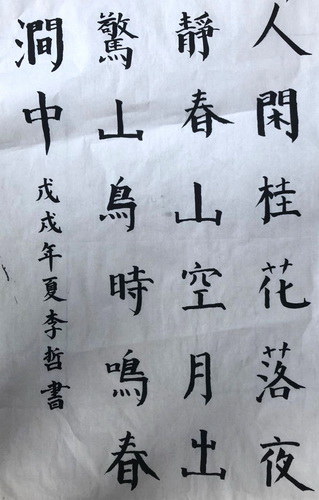 人閑桂花落夜
靜春山空月出
驚山鳥時鳴春
澗中
戊戌年夏李哲書